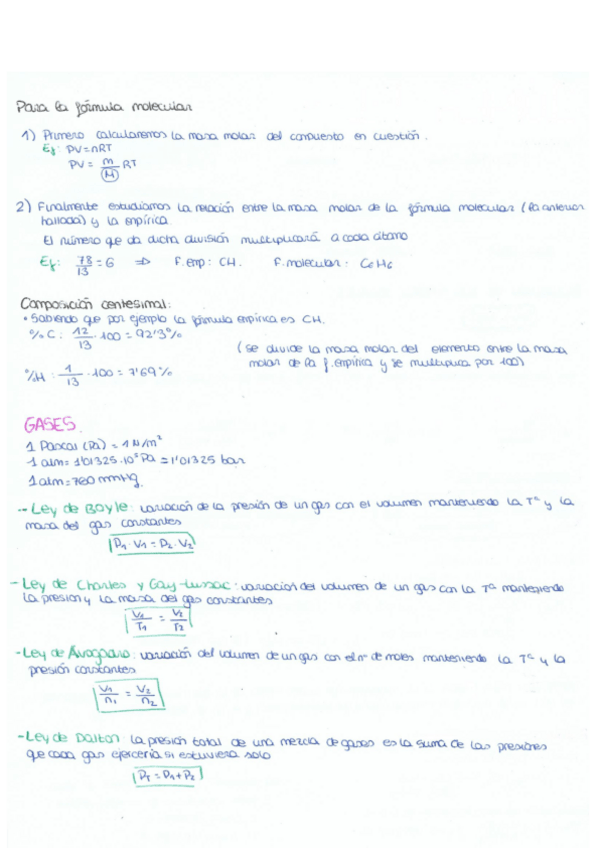 Para la fórmula molecular
1) Primero calcularemos la masa molar del compuesto en cuestión.
Ej: PV=nRT
PV = m/M RT
2) Finalmente estudiamos la relación entre la masa molar de la fórmula molecular (la anterior
hallada) y la empírica
El número que da dicha división multiplicará a cada átomo
Ej: 78/13 = 6 ⇒ F.emp: CH. F.molecular: C6H6
Composición centesimal:
• Sabiendo que por ejemplo la fórmula empírica es CH.
% C: 12/13 · 100 = 92'3%
(se divide la masa molar del elemento entre la masa
molar de la f.empírica y se multiplica por 100)
%H: 1/13 · 100 = 7'69%
GASES.
1 Pascal (Pa) = 1 N/m²
1 atm = 1'01325·10⁵ Pa = 1'01325 bar
1 atm = 760 mmHg.
- Ley de Boyle: variación de la presión de un gas con el volumen manteniendo la Tª y la
masa del gas constantes
P1 · V1 = P2 · V2
- Ley de Charles y Gay-Lussac: variación del volumen de un gas con la Tª manteniendo
la presión y la masa del gas constantes
V1/T1 = V2/T2
- Ley de Avogadro: variación del volumen de un gas con el nº de moles manteniendo la Tª y la
presión constantes
V1/n1 = V2/n2
- Ley de Dalton la presión total de una mezcla de gases es la suma de las presiones
que cada gas ejercería si estuviera solo
PT = P1 + P2